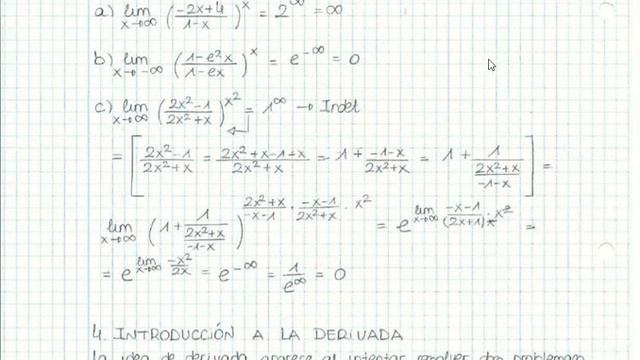 a) lim x→∞ (-2x+4 / 1-x)^x = 2^∞ = ∞
b) lim x→-∞ (1-e²x / 1-ex)^x = e^-∞ = 0
c) lim x→∞ (2x²-1 / 2x²+x)^x² = 1^∞ → Indet
= [ 2x²-1 / 2x²+x = 2x²+x-1-x / 2x²+x = 1 + -1-x / 2x²+x = 1 + 1 / (2x²+x / -1-x) ] =
lim x→∞ (1 + 1 / (2x²+x / -1-x))^(2x²+x / -x-1 · -x-1 / 2x²+x · x²) = e^(lim x→∞ -x-1 / (2x+1)x · x²) =
= e^(lim x→∞ -x² / 2x) = e^-∞ = 1 / e^∞ = 0
4. INTRODUCCIÓN A LA DERIVADA
la idea de derivada aparece al intentar resolver dos problemas